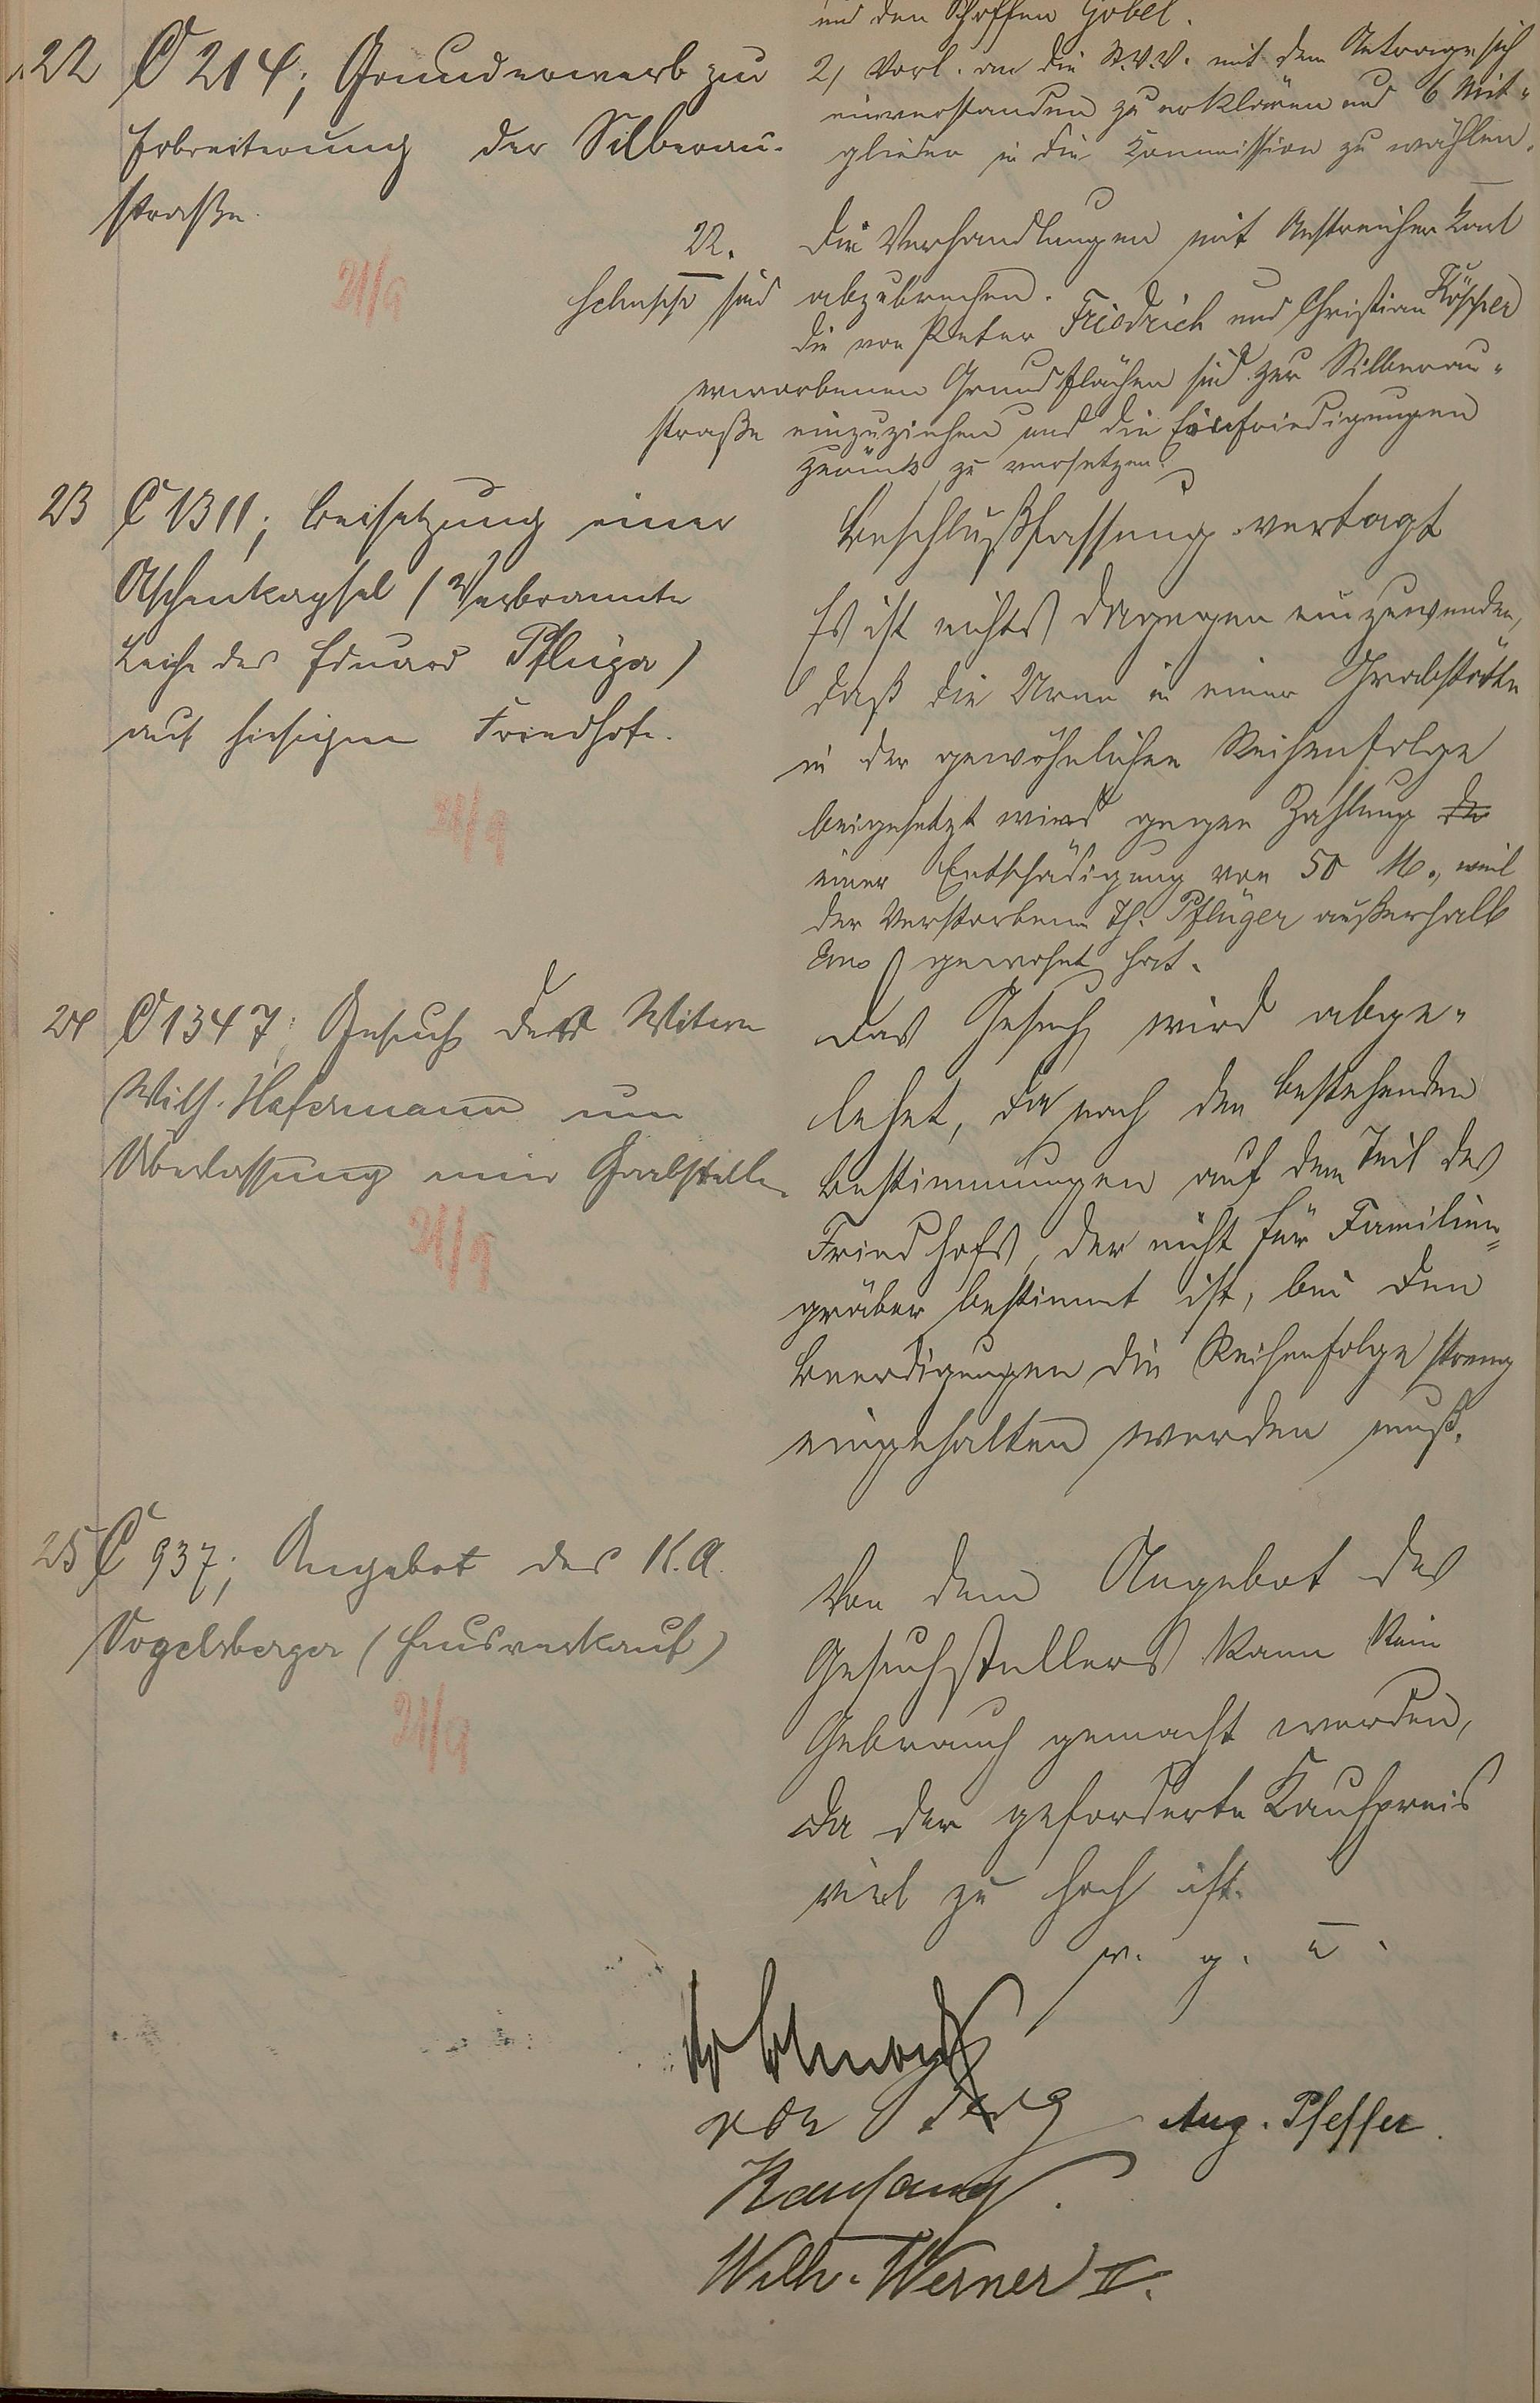 und den Schöffen Göbel.
2) Vorl. an die St.V.V. mit dem Antrage sich
einverstanden zu erklären und 6 Mit-
glieder in die Kommission zu wählen.
22 C 214; Grunderwerb zur
Erbreiterung der Silberau-
straße.
21/9
22. Die Verhandlungen mit Anstreicher Karl
sind abzubrechen.
Die von Peter Friedrich und Christian
erworbenen Grundflächen sind zur Silberau-
straße einzuziehen und die Einfriedigungen
zurück zu versetzen.
23 C 1311; Beisetzung einer
Aschenkapsel (Verbrannte
Leiche des Eduard Pflüger)
auf hiesigem Friedhofe.
21/9
Beschlußfassung vertagt
Es ist nichts dagegen einzuwenden,
daß die Urne in einer Grabstätte
in der gewöhnlichen Reihenfolge
beigesetzt wird gegen Zahlung de
einer Entschädigung von 50 M., weil
der Verstorbene Ed. Pflüger außerhalb
Ems gewohnt hat.
24 C 1347; Gesuch der Witwe
Wilh. Hafermann um
Überlassung einer Grabstelle.
21/9
Das Gesuch wird abge-
lehnt, da nach den bestehenden
Bestimmungen auf dem Teil des
Friedhofs, der nicht für Familien-
gräber bestimmt ist, bei den
Beerdigungen die Reihenfolge streng
eingehalten werden muß.
25 C 937; Angebot des K.A.
Vogelsberger (Hausverkauf)
21/9
Von dem Angebot des
Gesuchstellers kann kein
Gebrauch gemacht werden,
da der geforderte Kaufpreis
viel zu hoch ist.
v. g. u.
Aug. Pfeffer.
Wilh. Werner II.